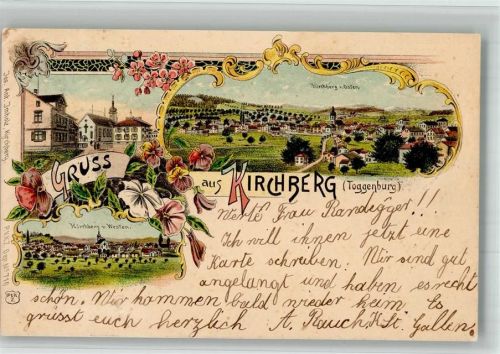 Kirchberg v. Osten.
GRUSS
aus KIRCHBERG (Toggenburg)
Kirchberg v. Westen.
Werte Frau Randegger!!
Ich will ihnen jetzt eine
Karte schreiben. Mir sind gut
angelangt und haben es recht
schön. Mir kommen bald wieder heim. Es
grüsst euch herzlich A. Rauch, St. Gallen.